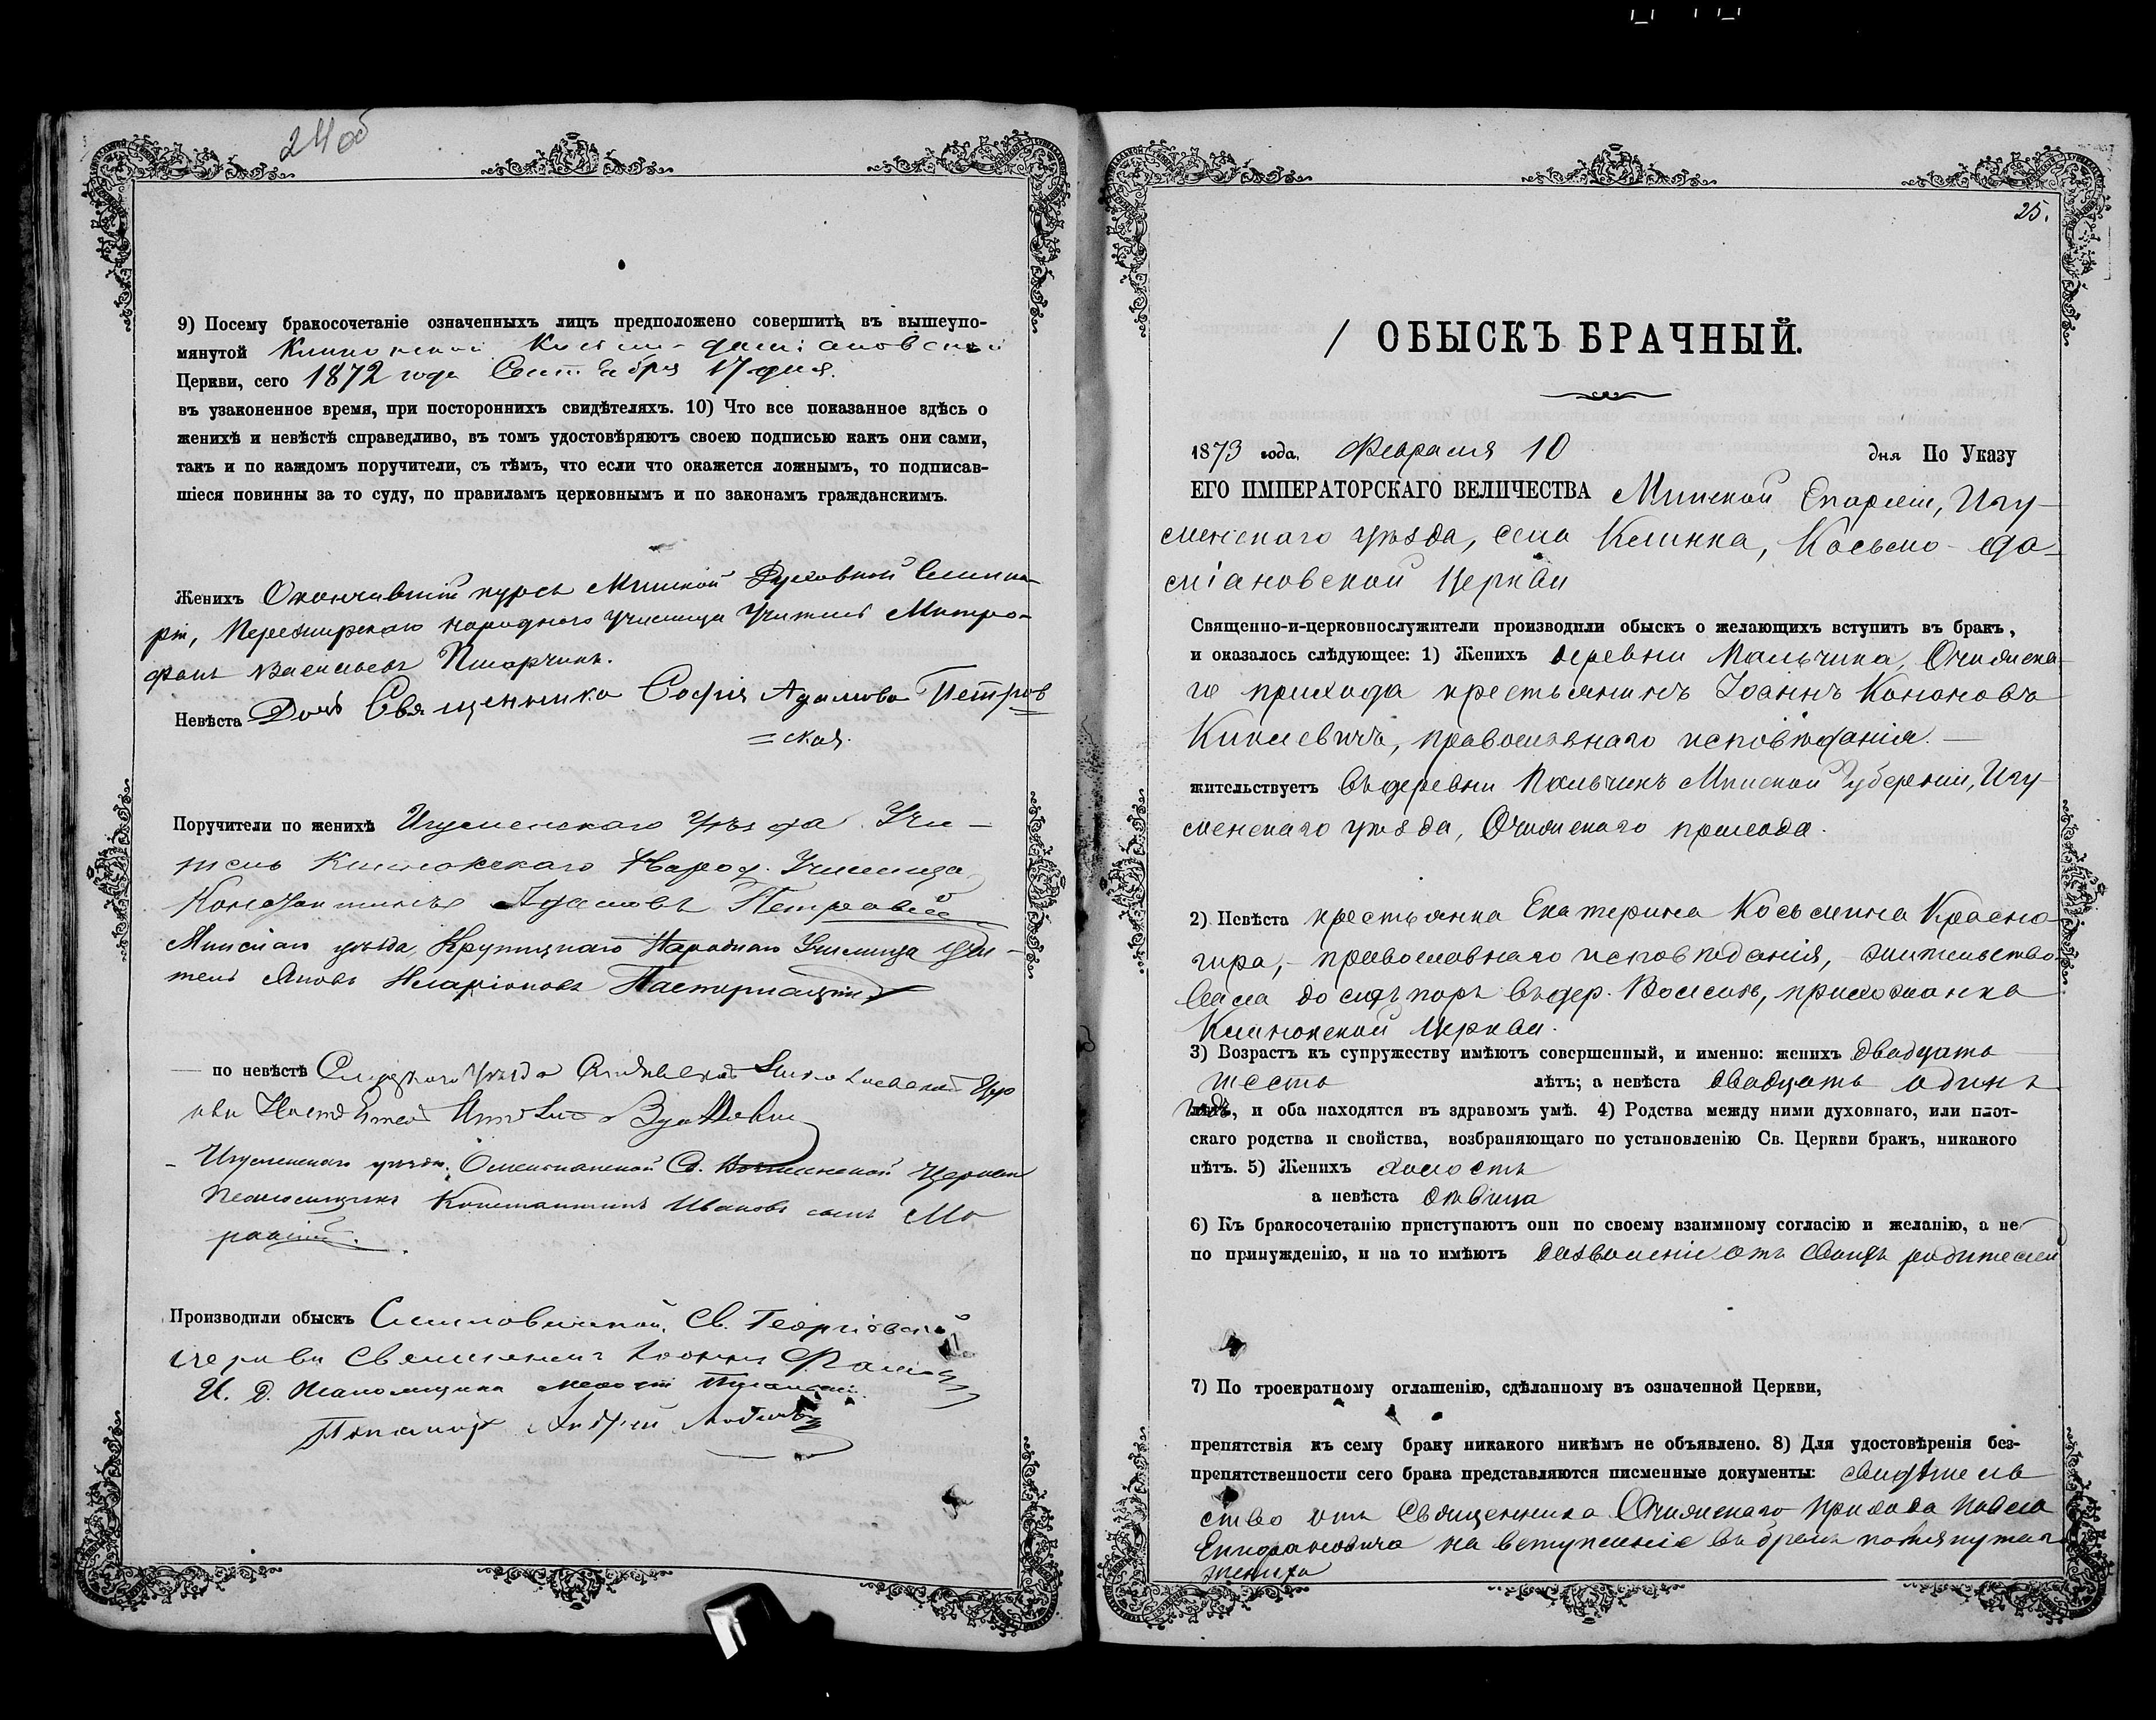 24об
9) Посему бракосочетаніе означенныхъ лицъ предположено совершить въ вышеупо-
мянутой Клинокской Косьмо-Даміановской
Церкви, сего 1872 года Сентября 17 дня.
въ узаконенное время, при постороннихъ свидѣтеляхъ. 10) Что все показанное здѣсь о
женихѣ и невѣстѣ справедливо, въ томъ удостовѣряютъ своею подписью какъ они сами,
такъ и по каждомъ поручители, съ тѣмъ, что если что окажется ложнымъ, то подписав-
шіеся повинны за то суду, по правиламъ церковнымъ и по законамъ гражданскимъ.
Женихъ Окончившій курсъ Минской Духовной Семина-
ріи, народнаго училища Учитель Митро-
фанъ Васильевъ Писарчикъ.
Невѣста Дочь Священника Софія Адамова Петров
=ская.
Поручители по женихѣ Игуменскаго Уѣзда Учи-
тель Клинокскаго Народ. Училища
Константинъ Адамовъ Петровскій
Минскаго уѣзда, Крупицкаго Народнаго Училища учи-
тель Яковъ Иларіоновъ
по невѣстѣ уѣзда Николаевской Цер
кви
Игуменскаго уѣзда, Св. церкви
Псаломщикъ Константинъ Ивановъ сынъ
Производили обыскъ Смиловичской, Св. Георгіевской
церкви Священникъ Іоаннъ
И. Д. Псаломщика
Пономарь Андрей
25.
/ ОБЫСКЪ БРАЧНЫЙ.
1873 года, Февраля 10 дня По Указу
ЕГО ИМПЕРАТОРСКАГО ВЕЛИЧЕСТВА Минской Епархіи, Игу-
менскаго уѣзда, села Клинка, Косьмо-Да-
міановской Церкви
Священно-и-церковнослужители производили обыскъ о желающихъ вступить въ бракъ,
и оказалось слѣдующее: 1) Женихъ деревни Пальчика, Очижска-
го прихода крестьянинъ Іоаннъ Кононовъ
православнаго исповѣданія.
жительствуетъ въ деревни Пальчикъ Минской Губерніи, Игу-
менскаго уѣзда, Очижскаго прихода.
2) Невѣста крестьянка Екатерина Косьмина Красно-
гира, - православнаго исповѣданія, - жительство-
вала до сихъ поръ въ дер. прихожанка
Клинокской Церкви.
3) Возрастъ къ супружеству имѣютъ совершенный, и именно: женихъ двадцать
шесть лѣтъ; а невѣста двадцать одинъ
годъ, и оба находятся въ здравомъ умѣ. 4) Родства между ними духовнаго, или плот-
скаго родства и свойства, возбраняющаго по установленію Св. Церкви бракъ, никакого
нѣтъ. 5) Женихъ холостъ
а невѣста дѣвица
6) Къ бракосочетанію приступаютъ они по своему взаимному согласію и желанію, а не
по принужденію, и на то имѣютъ дозволеніе отъ своихъ родителей
7) По троекратному оглашенію, сдѣланному въ означенной Церкви,
препятствія къ сему браку никакого никѣмъ не объявлено. 8) Для удостовѣренія без-
препятственности сего брака представляются писменные документы: свидѣтель
ство отъ Священника Очижскаго прихода Павла
Епифановича на вступленіе въ бракъ помянутаго
жениха